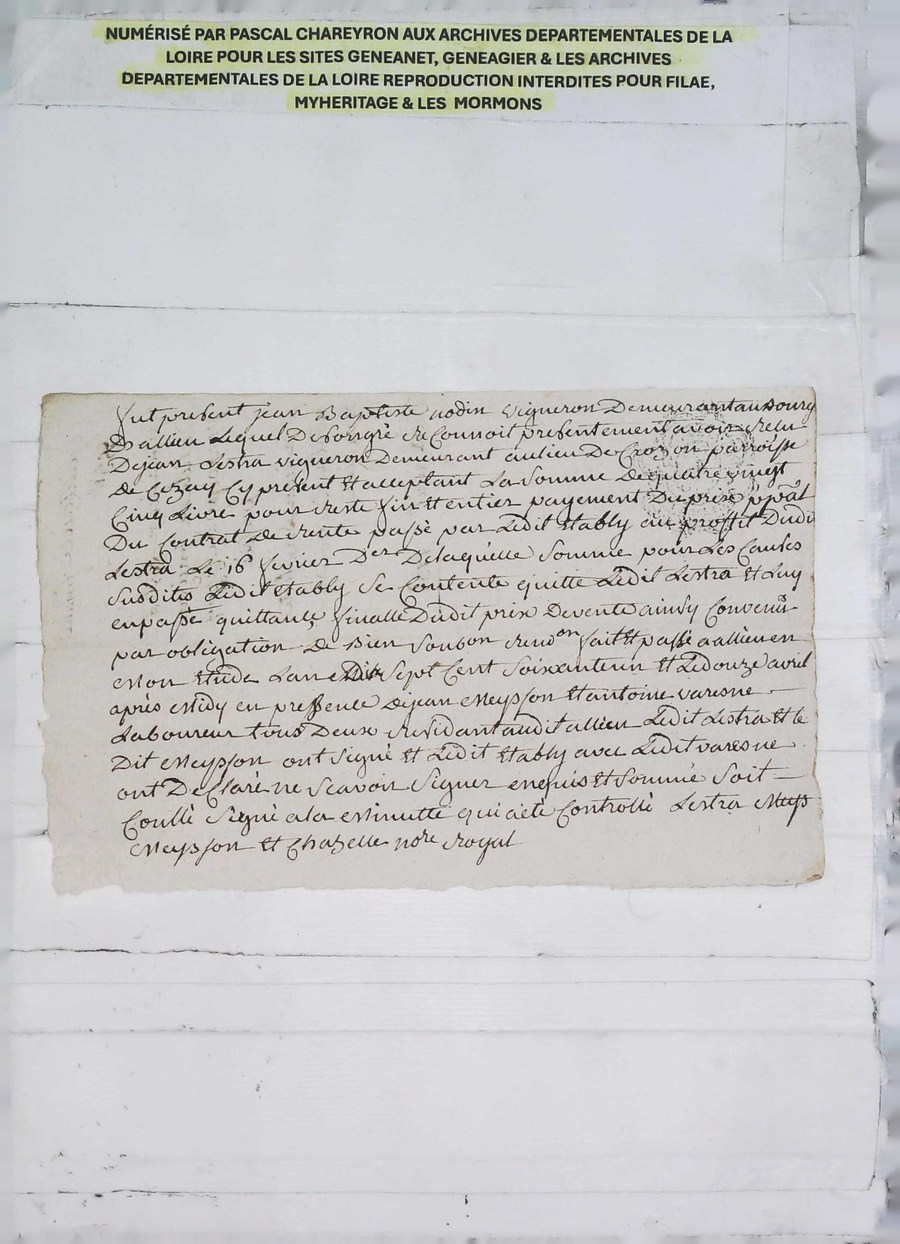 NUMÉRISÉ PAR PASCAL CHAREYRON AUX ARCHIVES DEPARTEMENTALES DE LA
LOIRE POUR LES SITES GENEANET, GENEAGIER & LES ARCHIVES
DEPARTEMENTALES DE LA LOIRE REPRODUCTION INTERDITES POUR FILAE,
MYHERITAGE & LES MORMONS
fut present jean Baptiste nodin vigneron Demeurant au Bourg
D'allieu Lequel De son gré reConnoit presentement avoir reçu
De jean Lestra vigneron Demeurant au lieu De Crozon parroisse
de Cezay Cy present et acceptant La somme De quatre vingt
Cinq Livre pour reste fin et entier payement Du prix ppâl
Du Contrat De vente passé par Ledit Etably au proffit Dudi
Lestra Le 16 fevrier Der De laquelle somme pour Les Causes
susdites Ledit Etably se Contente quitte Ledit Lestra et Luy
en passe quittance finalle Dudit prix De vente ainsy Convenus
par obligation De Bien soub on renon fait et passé a allieu en
Mon Etude L'an sept Cent soixante un et Le douze avril
après Midy en pressence De jean Meysson et antoine varesne
Laboureur tous Deux residant audit allieu Ledit Lestra et le
Dit Meysson ont signé et Ledit Etably avec Ledit varesne
ont DeClaré ne scavoir signer enquis et sommé soit
Collé signé a la Minutte qui a été Controllé Lestra Meys
Meysson et Chazelle nore royal